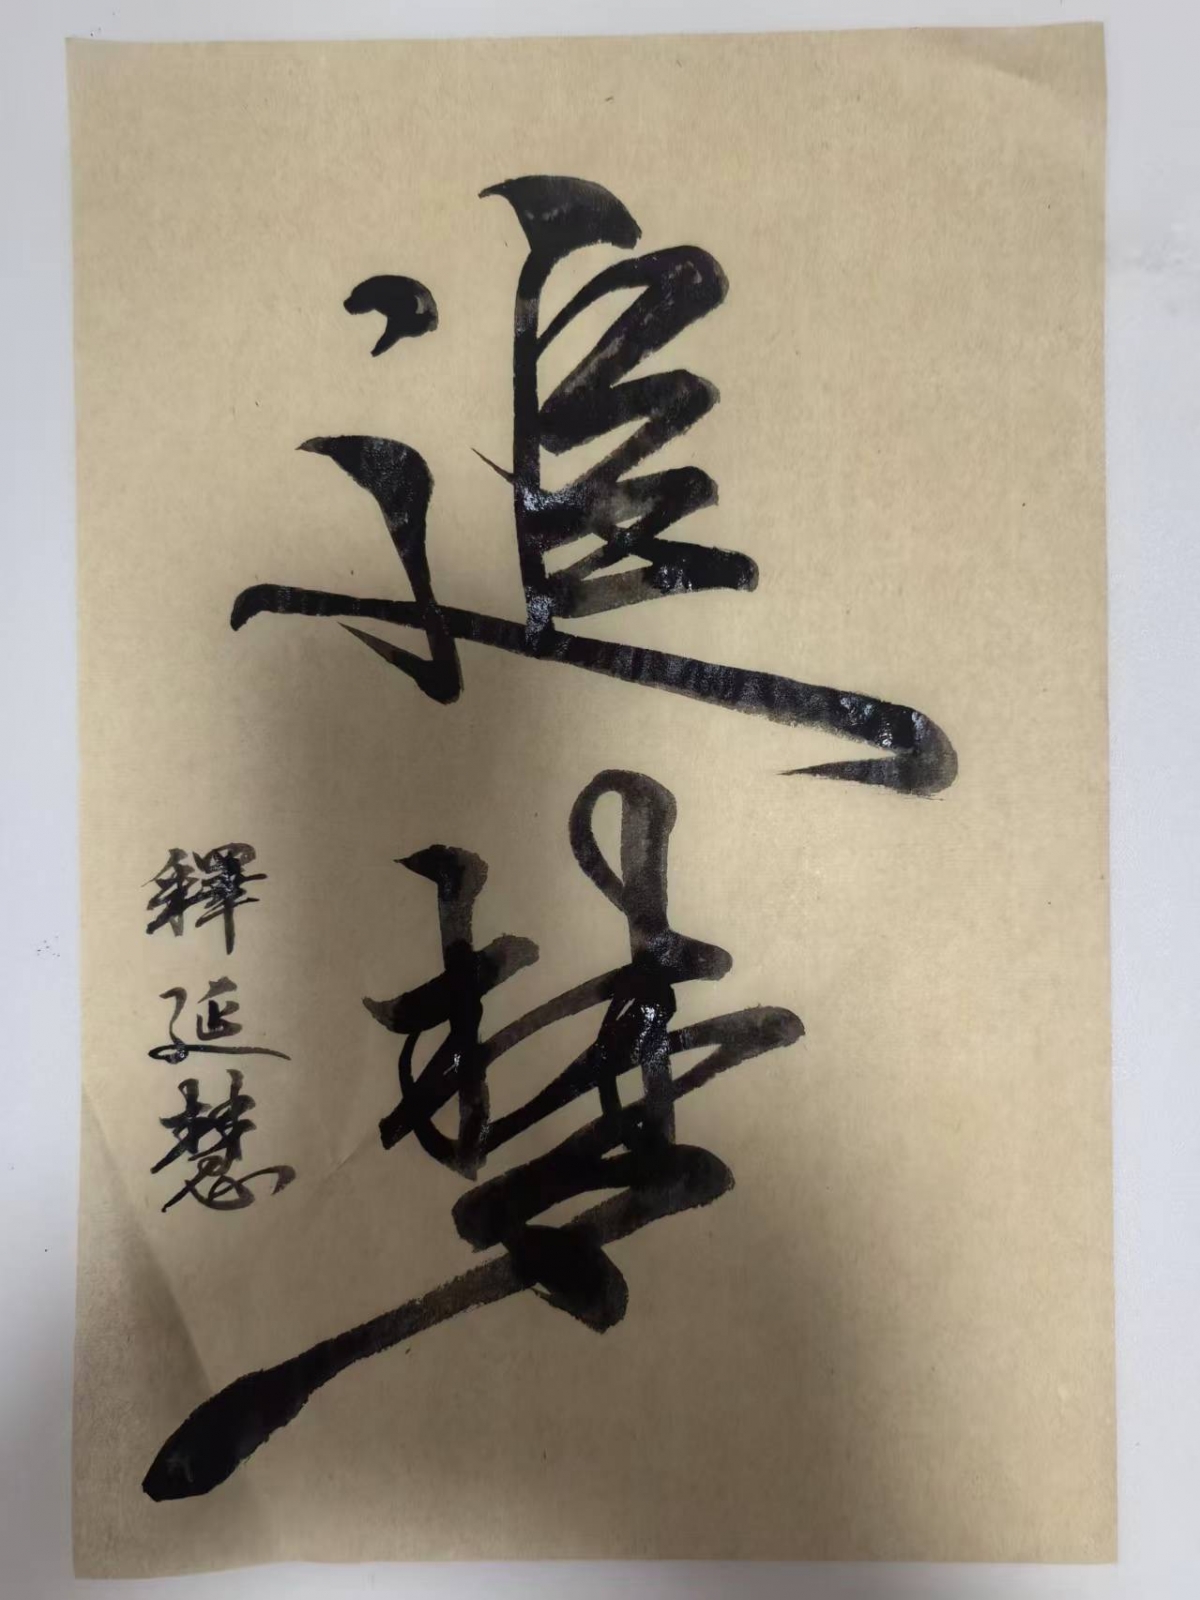 追梦
釋延慧